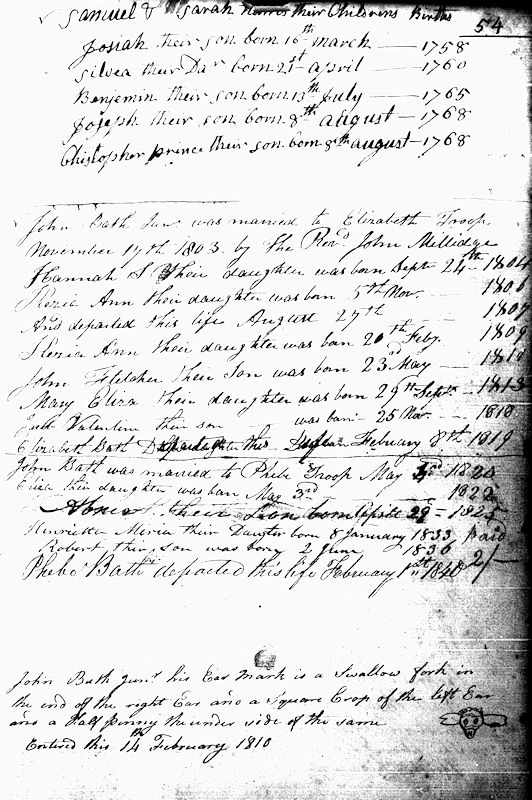 Samuel & Sarah their Childrens Births
54
Josiah their son born 16th march — 1758
Silvea their Dar born 21st april — 1760
Benjemin their son born 13th July — 1765
Joseph their son born 8th august — 1768
Christopher prince their son born 8th august — 1768
John Bath Junr was married to Elizabeth Troop
November 17th 1803 by the Revd John Millidge
Hannah S their daughter was born Sept 24th 1804
Ann their daughter was born 5th Nov. 1806
And departed this life August 27th
Ann their daughter was born 20th Feby.
John Fletcher their Son was born 23rd May
Mary Eliza their daughter was born 29th Septr. 1813
Valentine their son was born 25 Nov. 1818
Elizabeth Bath this Life February 8th 1819
John Bath was married to Phebe Troop May 3rd 1820
their daughter was born May 3rd 1822
Abner their Son born 29 1825
Henrietta Meria their Daugter born 8 January 1833 Paid
Robert their son was born 2 June 1836 2/-
Phebe Bath departed this life February 1st 1840
John Bath junr his Ear Mark is a Swallow fork in
the end of the right Ear and a Square Crop of the left Ear
and a Half penny the under side of the same
Entered this 14th February 1810